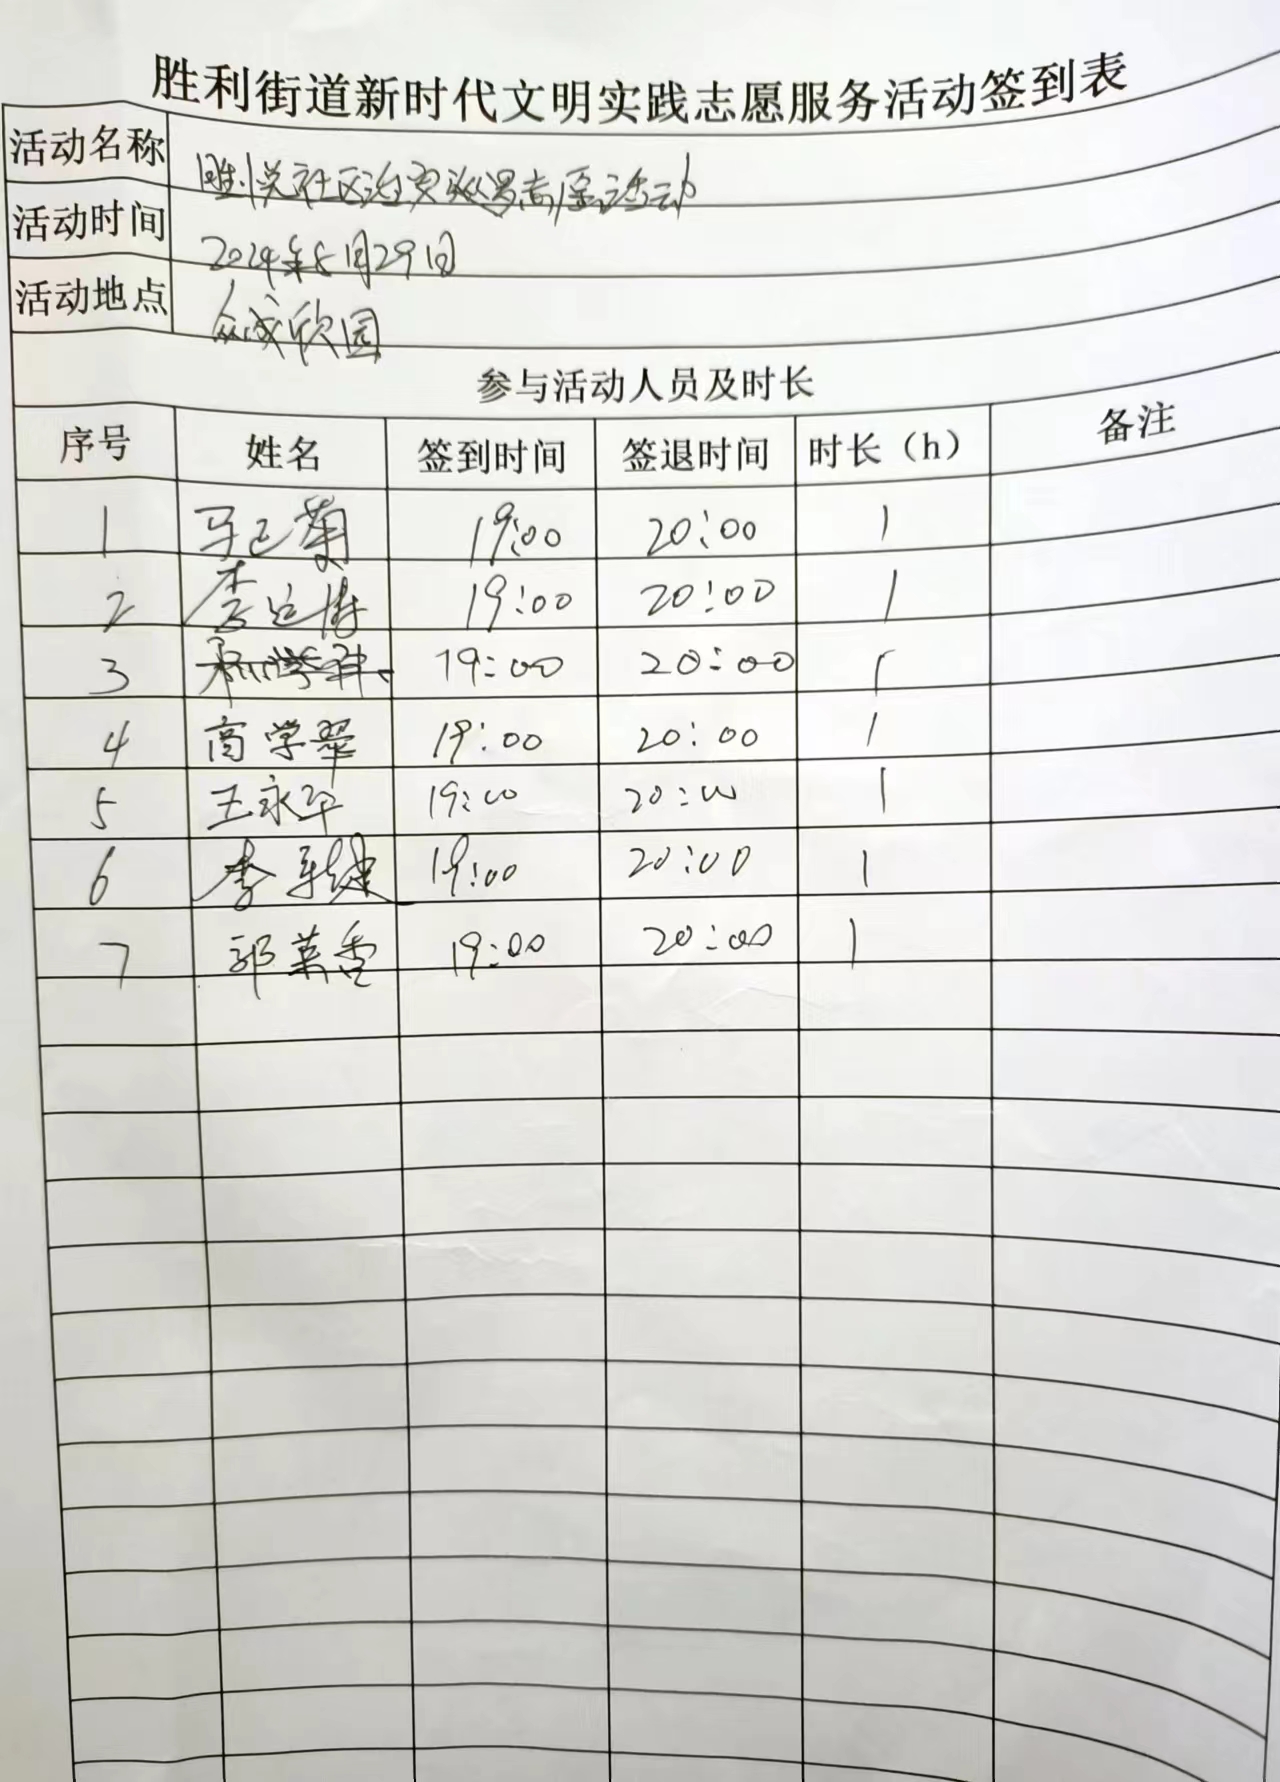 胜利街道新时代文明实践志愿服务活动签到表
活动名称 胜利社区治安巡逻志愿活动
活动时间 2024年8月29日
活动地点 众成欣园
参与活动人员及时长
序号 姓名 签到时间 签退时间 时长（h） 备注
1 马巳菊 19:00 20:00 1
2 李 19:00 20:00 1
3 19:00 20:00 1
4 商学翠 19:00 20:00 1
5 王永平 19:00 20:00 1
6 李 19:00 20:00 1
7 郭英香 19:00 20:00 1